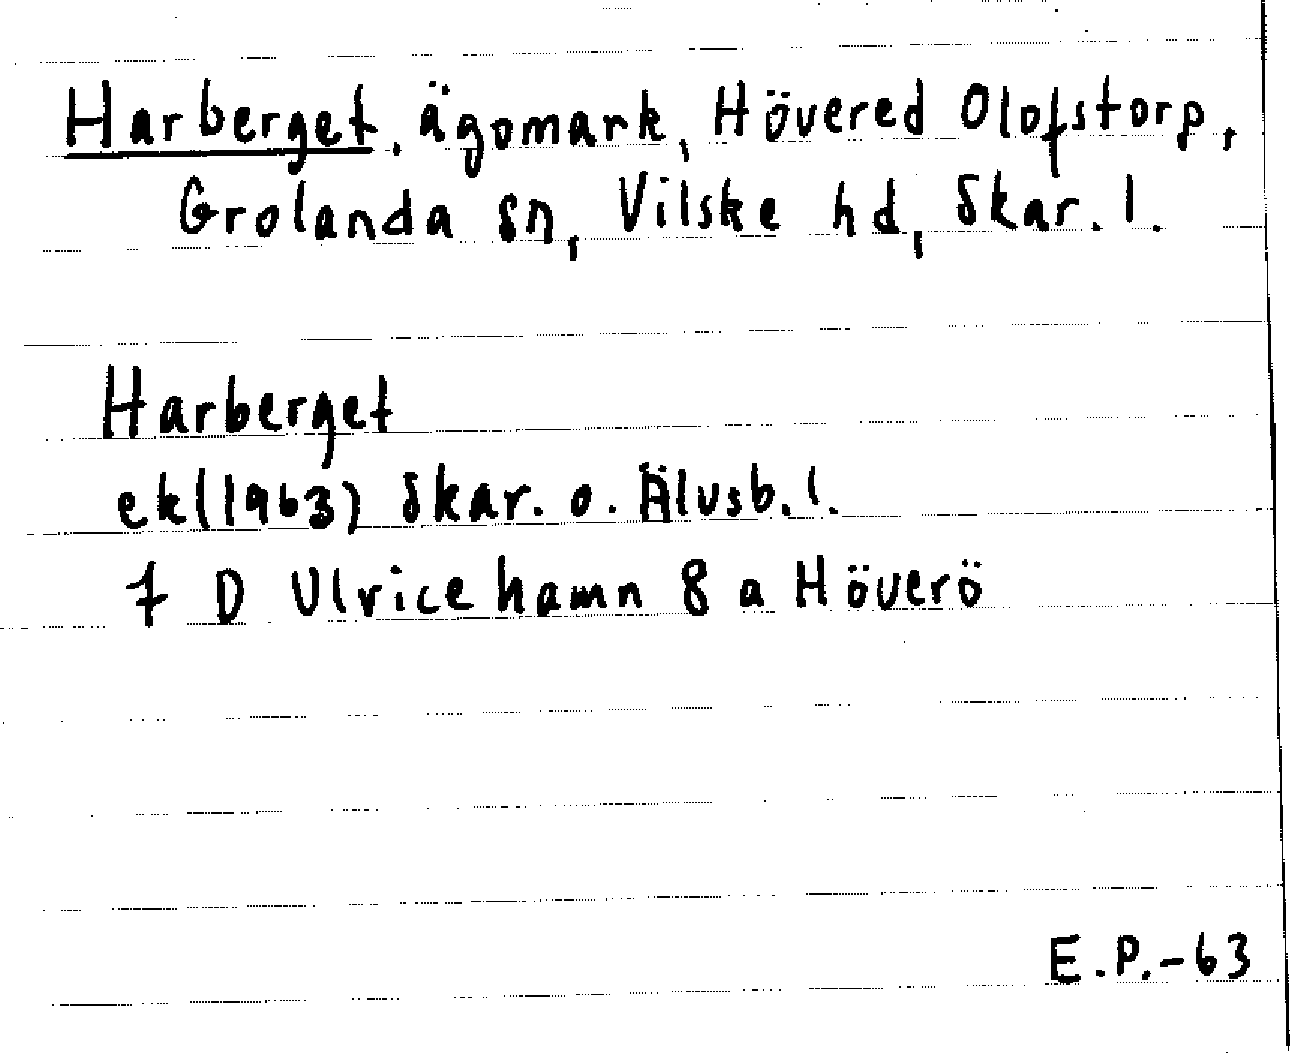 Harberget, ägomark, Hövered Olofstorp,
Grolanda sn, Vilske hd, Skar. l.
Harberget
ek(1963) Skar. o. Älvsb. l.
7 D Ulricehamn 8 a Höverö
E.P.-63